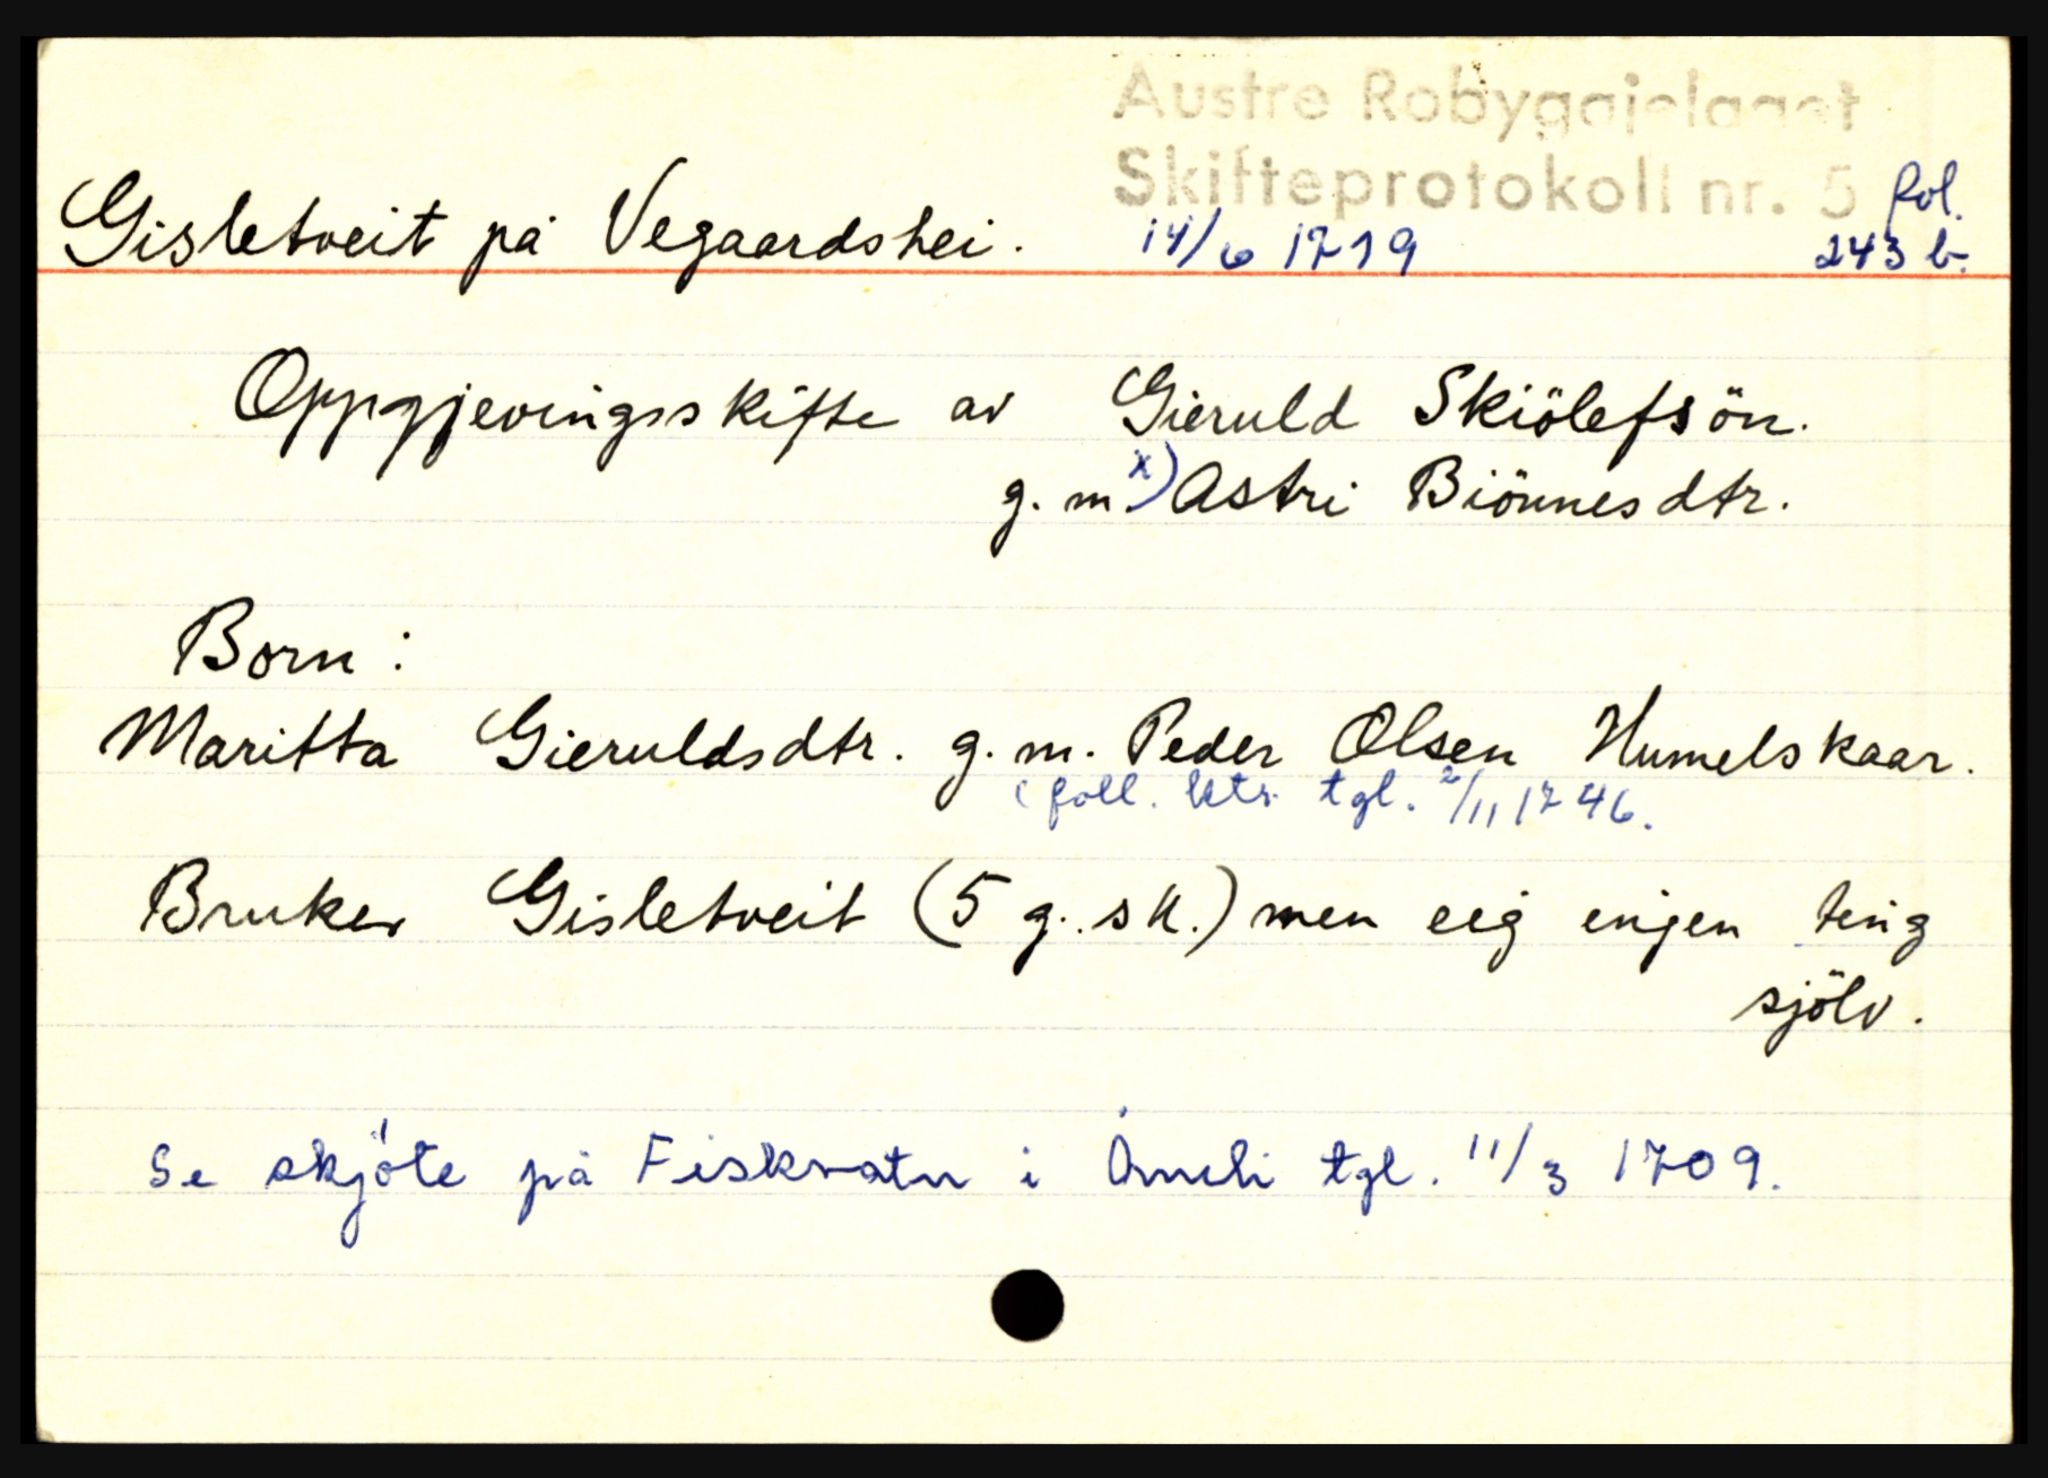 Austre Robyggjelaget
Skifteprotokoll nr. 5 fol.
Gisletveit på Vegaardshei. 14/6 1719 243 b.
Oppgjevingsskifte av Gieruld Skiölefsön.
g. m. x) Astri Biönnesdtr.
Born:
Maritta Gieruldsdtr. g. m. Peder Olsen Humelskaar.
tgl. 2/11 1746.
Bruker Gisletveit (5 g. sk.) men eig ingen ting
sjölv.
Se skjöte på Fiskvatn i Åmli tgl. 11/3 1709.